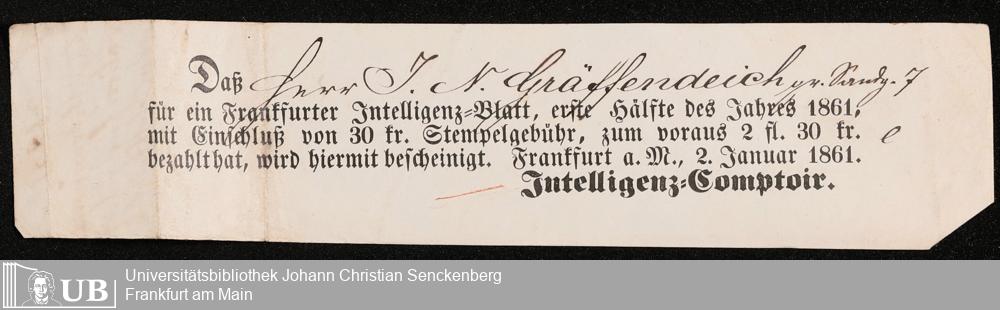 Daß Herr J. N. Gräffendeich gr. Sandg. 7
für ein Frankfurter Intelligenz-Blatt, erste Hälfte des Jahres 1861,
mit Einschluß von 30 kr. Stempelgebühr, zum voraus 2 fl. 30 kr.
bezahlt hat, wird hiermit bescheinigt. Frankfurt a. M., 2. Januar 1861.
Intelligenz-Comptoir.
UB
Universitätsbibliothek Johann Christian Senckenberg
Frankfurt am Main